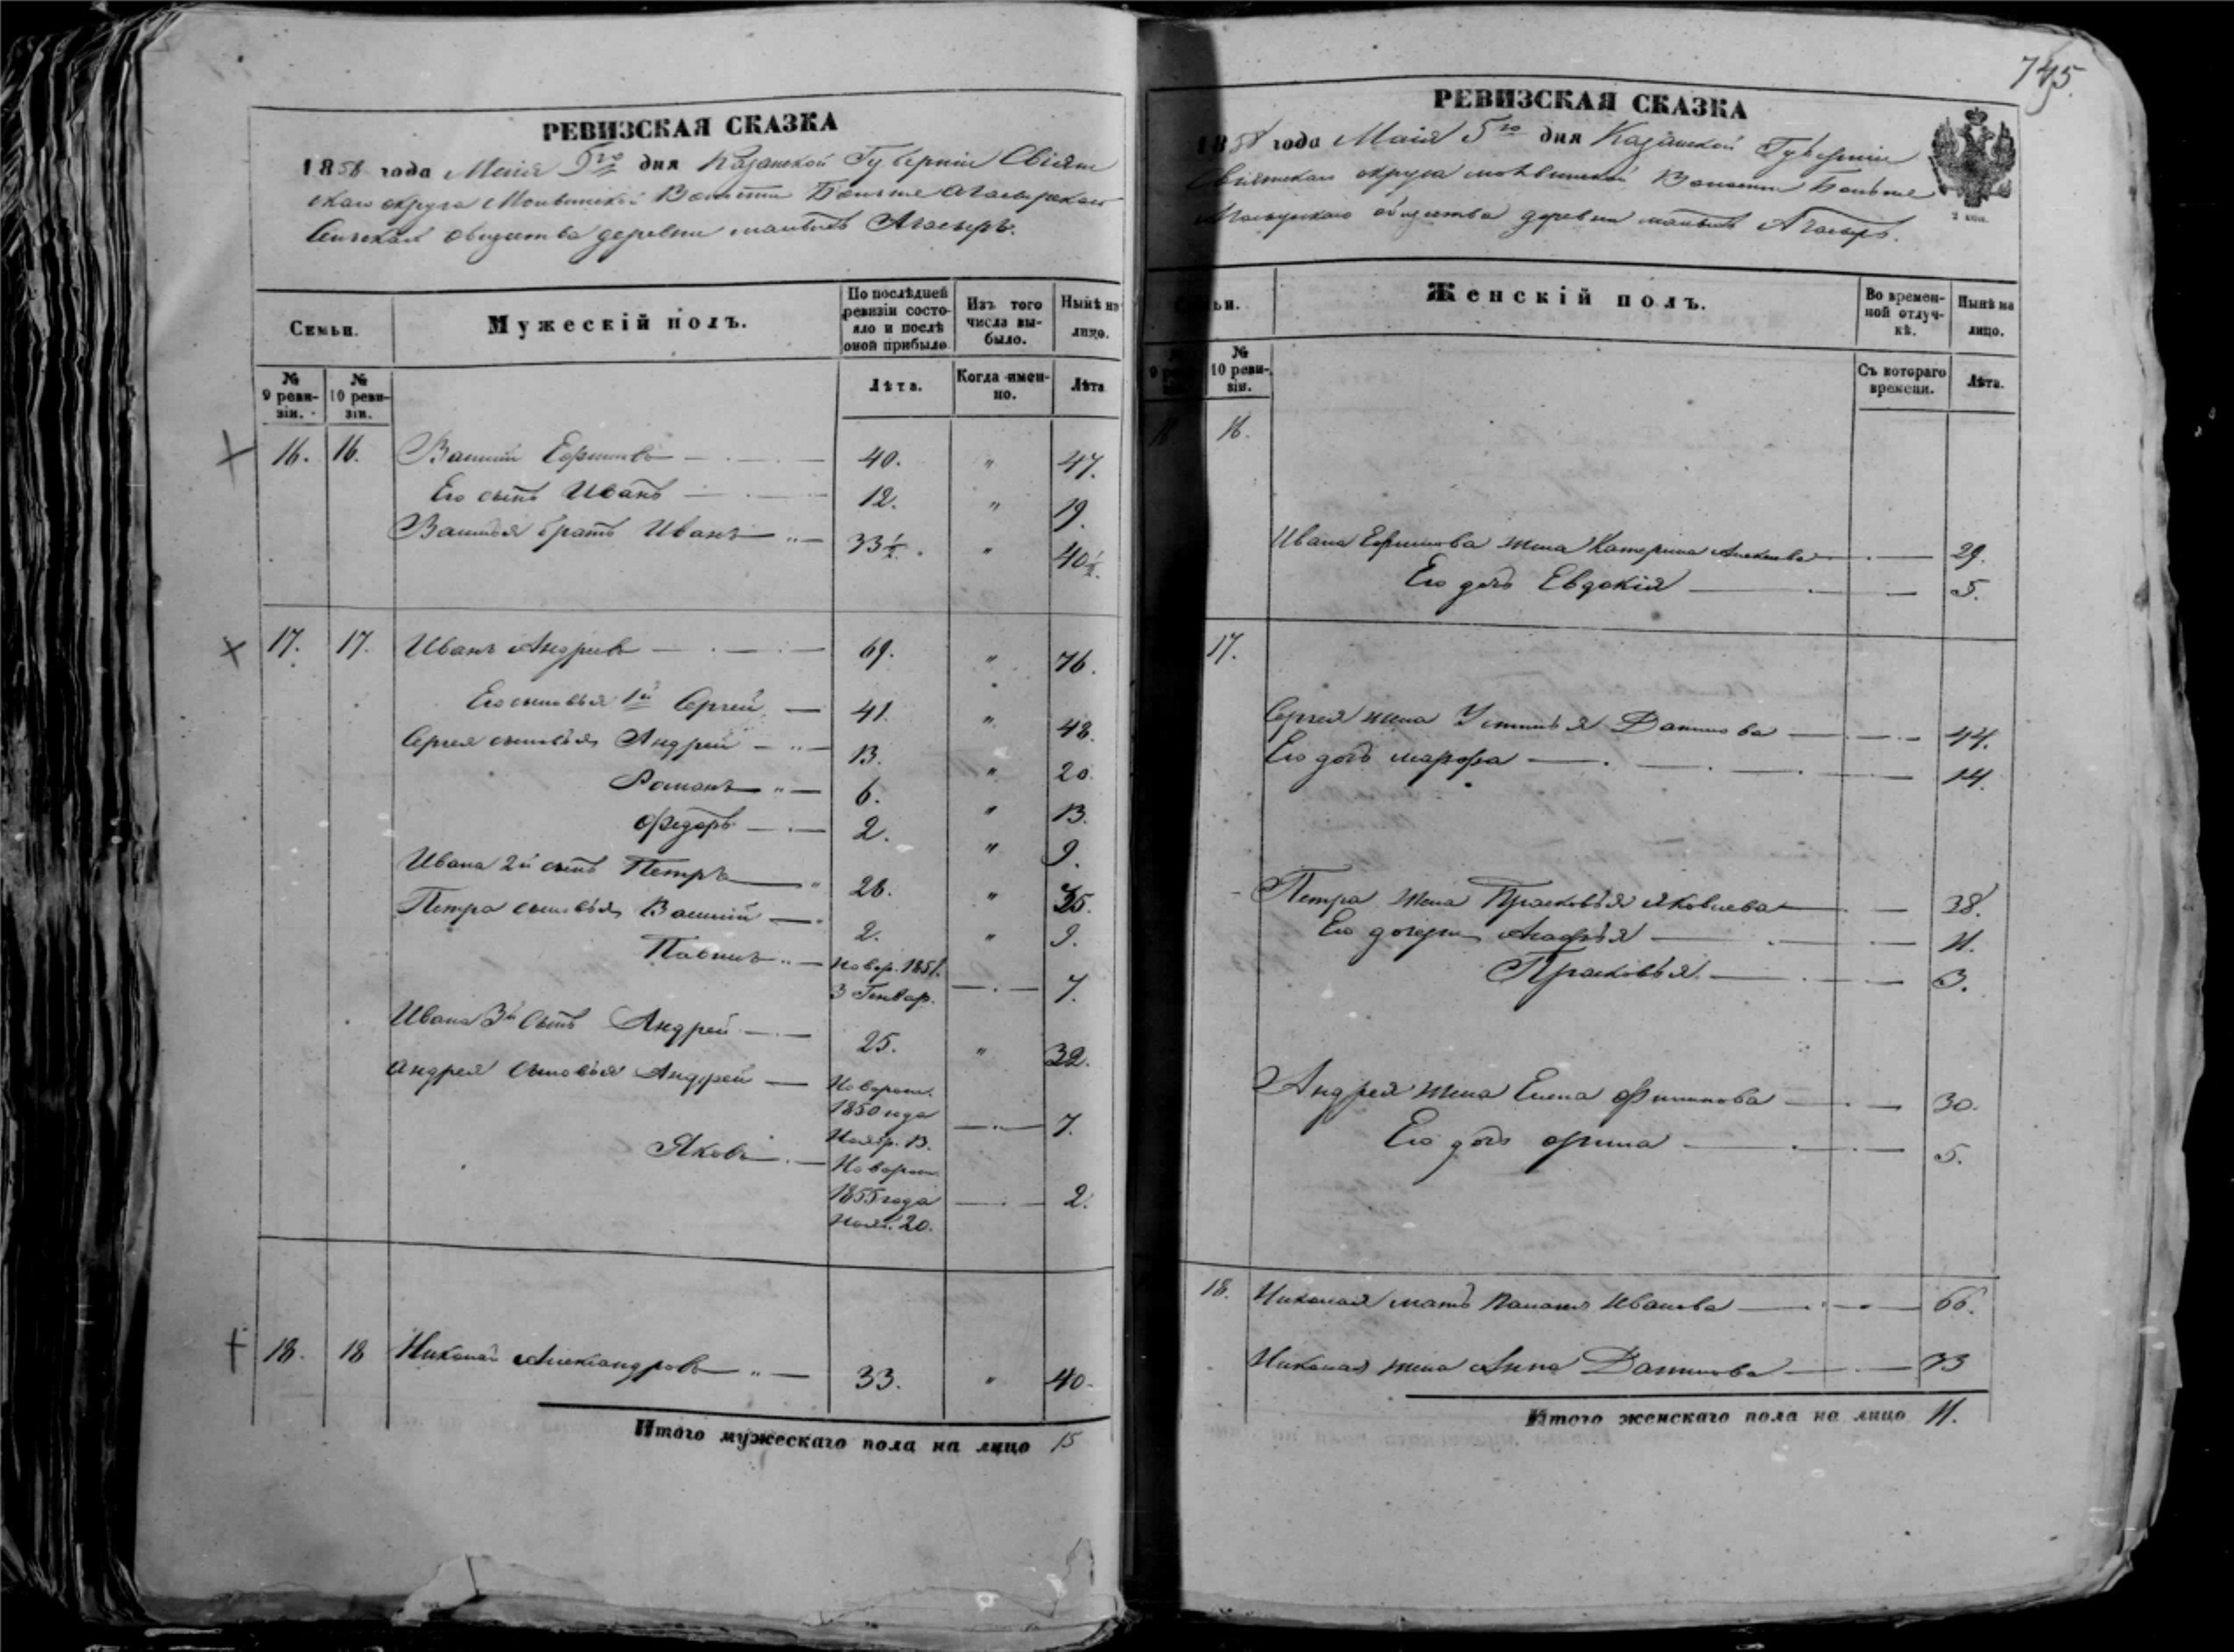 745.
РЕВИЗСКАЯ СКАЗКА
1858 года Маія 5го дня Казанской Губерніи Свіяж
скаго округа Волости Больше Агасырскаго
Сельскаго общества деревни малыхъ Агасыръ.
Семьи.
Мужескій полъ.
По послѣдней ревизіи состояло и послѣ оной прибыло.
Изъ того числа выбыло.
Нынѣ на лицо.
№ 9 ревизіи.
№ 10 ревизіи.
Лѣта.
Когда именно.
Лѣта
16. 16. Василій Ефимовъ 40. " 47.
Его сынъ Иванъ 12. " 19.
Василья братъ Иванъ " 33½. " 40½.
17. 17. Иванъ Андреевъ 69. " 76.
Его сыновья 1й Сергей 41. " 48.
Сергея сыновья Андрей " 13. " 20.
Романъ " 6. " 13.
Федоръ 2. " 9.
Ивана 2й сынъ Петръ " 28. " 35.
Петра сыновья Василій " 2. " 9.
Павелъ " Новор. 1851.
3 Генвар. 7.
Ивана 3й Сынъ Андрей 25. " 32.
Андрея Сыновья Андрей Новорож.
1850 года 7.
Ноябр. 13.
Яковъ Новорож.
1855 года 2.
Нояб. 20.
18. 18 Николай Александровъ " 33. " 40.
Итого мужескаго пола на лицо 15
РЕВИЗСКАЯ СКАЗКА
1858 года Маія 5го дня Казанской Губерніи
Свіяжскаго округа Волости Больше
Агасырскаго общества деревни малыхъ Агасыръ.
2 коп.
Семьи.
Женскій полъ.
Во временной отлучкѣ.
Нынѣ на лицо.
№ 9 ревизіи.
№ 10 ревизіи.
Съ котораго времени.
Лѣта.
16. 16.
Ивана Ефимова жена Катерина Алексеева 29.
Его дочь Евдокія 5.
17.
Сергея жена Устинья Данилова 44.
Его дочь марфа 14.
Петра жена Прасковья яковлева 38.
Его дочери Агафья 11.
Прасковья 3.
Андрея жена Елена Филипова 30.
Его дочь орина 5.
18. Николая мать Иванова 66.
Николая жена Анна Данилова 33
Итого женскаго пола на лицо 11.